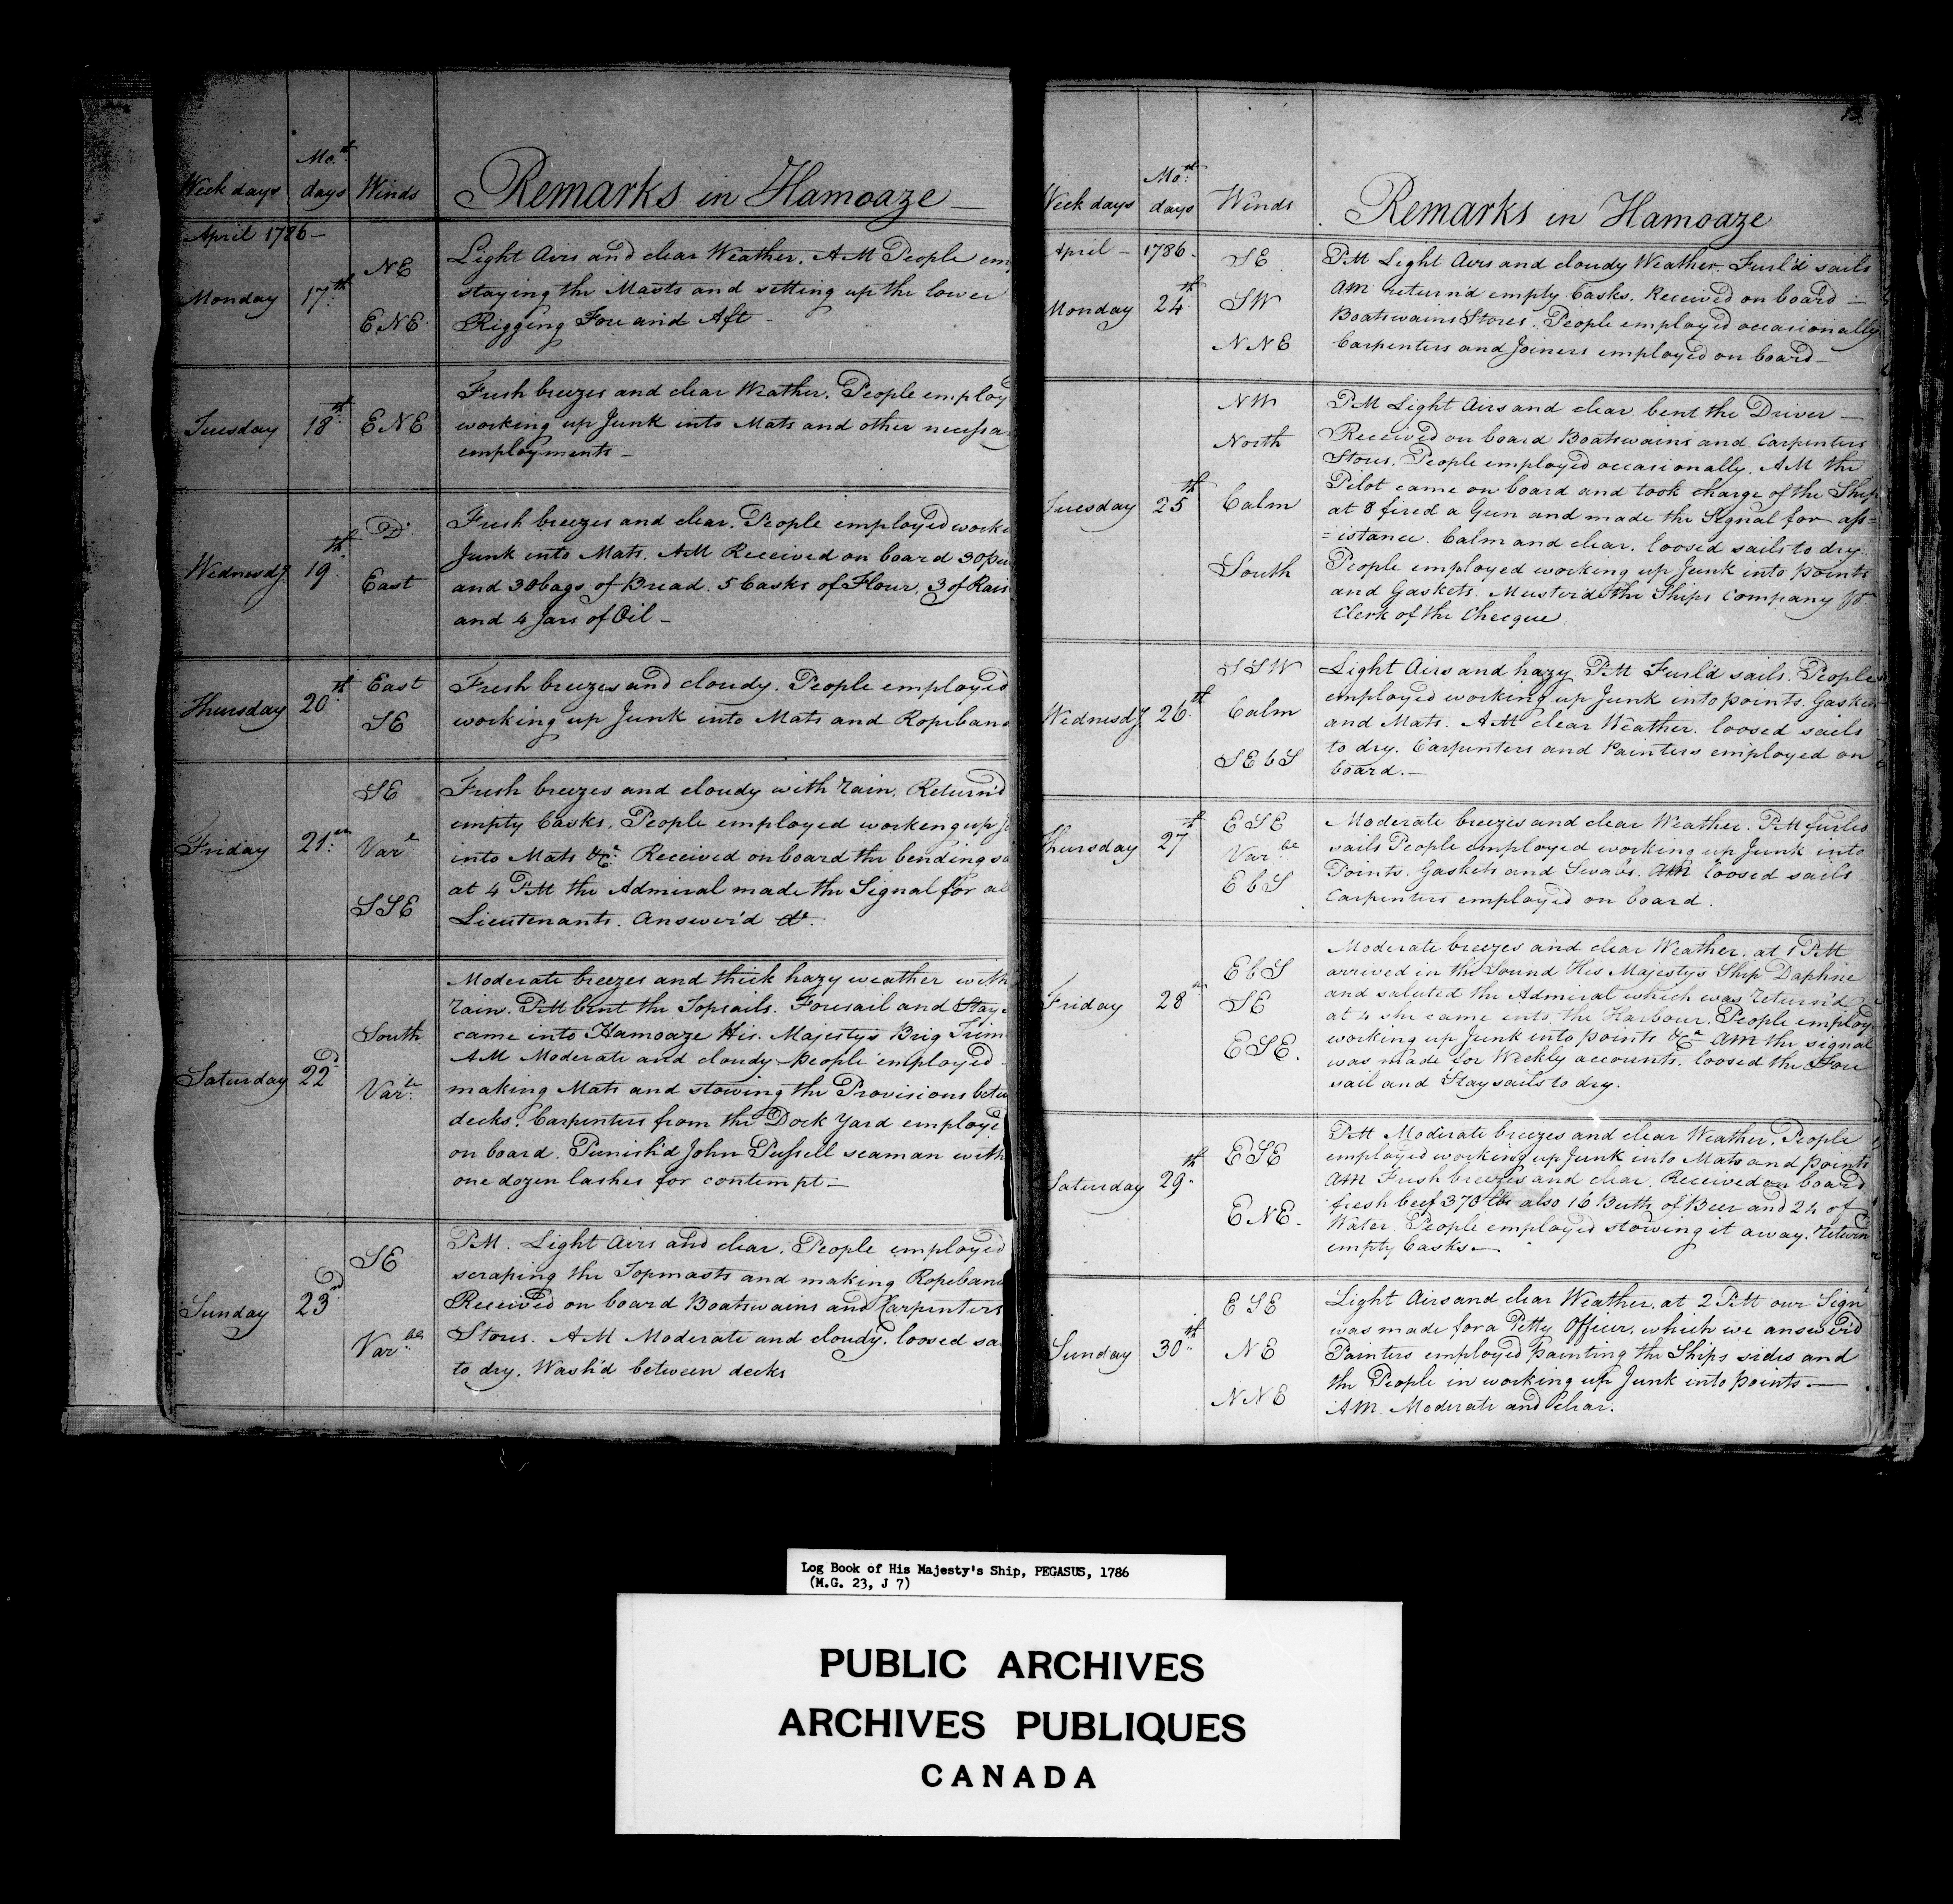 Week days Mo.th days Winds Remarks in Hamoaze
April 1786 –
Monday 17th NE ENE
Light Airs and clear Weather. AM People em
staying the Masts and setting up the lower
Rigging Fore and Aft –
Tuesday 18th ENE
Fresh breezes and clear Weather. People employ
working up Junk into Mats and other necessa
employments –
Wednesdy. 19th Do. East
Fresh breezes and clear. People employed worki
Junk into Mats. AM Received on board 30 pie
and 30 bags of Bread. 5 Casks of Flour, 3 of Rais
and 4 Jars of Oil –
Thursday 20th East SE
Fresh breezes and cloudy. People employed
working up Junk into Mats and Ropeband
Friday 21st SE Varle SSE
Fresh breezes and cloudy with rain. Return'd
empty Casks. People employed working up J
into Mats &c. Received on board the bending sa
at 4 PM the Admiral made the Signal for al
Lieutenants. Answer'd do.
Saturday 22d South Varle
Moderate breezes and thick hazy weather with
rain. PM bent the Topsails. Foresail and Stay
came into Hamoaze His Majestys Brig Trim
AM Moderate and cloudy. people employed
making Mats and stowing the Provisions betw
decks. Carpenters from the Dock Yard employe
on board. Punish'd John Pussell seaman with
one dozen lashes for contempt –
Sunday 23d SE Varble
PM. Light Airs and clear. People employed
scraping the Topmasts and making Ropeband
Received on board Boatswains and Carpenters
Stores. AM Moderate and cloudy. loosed sa
to dry. Wash'd between decks
13
Week days Mo.th days Winds Remarks in Hamoaze
April – 1786.
Monday 24th SE SW NNE
PM Light Airs and cloudy Weather. Furl'd sails
AM return'd empty Casks. Received on board –
Boatswains Stores. People employed occasionally
Carpenters and Joiners employed on board –
Tuesday 25th NW North Calm South
PM Light Airs and clear. bent the Driver –
Received on board Boatswains and Carpenters
Stores. People employed occasionally. AM the
Pilot came on board and took charge of the Ship
at 8 fired a Gun and made the Signal for ass=
=istance. Calm and clear. loosed sails to dry.
People employed working up Junk into points
and Gaskets. Muster'd the Ships Company pr
Clerk of the Checque
Wednesdy. 26th SSW Calm SEbS
Light Airs and hazy PM Furl'd sails. People
employed working up Junk into points. Gasket
and Mats. AM clear Weather. loosed sails
to dry. Carpenters and Painters employed on
board. –
Thursday 27th ESE Varble EbS
Moderate breezes and clear Weather. PM furled
sails People employed working up Junk into
Points. Gaskets and Swabs. AM loosed sails
Carpenters employed on board.
Friday 28th EbS SE ESE.
Moderate breezes and clear Weather. at 1 PM
arrived in the Sound His Majestys Ship Daphne
and saluted the Admiral which was return'd
at 4 she came into the Harbour. People employ
working up Junk into points &c AM the signal
was made for Weekly accounts. loosed the Fore
sail and Stay sails to dry.
Saturday 29th ESE ENE.
PM Moderate breezes and clear Weather. People
employed working up Junk into Mats and points
AM Fresh breezes and clear. Received on board
fresh beef 370 lbs also 16 Butts of Beer and 24 of
Water. People employed stowing it away. return
empty Casks –
Sunday 30th ESE NE NNE
Light Airs and clear Weather. at 2 PM our Sign
was made for a Petty Officer. which we answer'd
Painters employed painting the Ships sides and
the People in working up Junk into points –
AM Moderate and Clear.
Log Book of His Majesty's Ship, PEGASUS, 1786
(M.G. 23, J 7)
PUBLIC ARCHIVES
ARCHIVES PUBLIQUES
CANADA